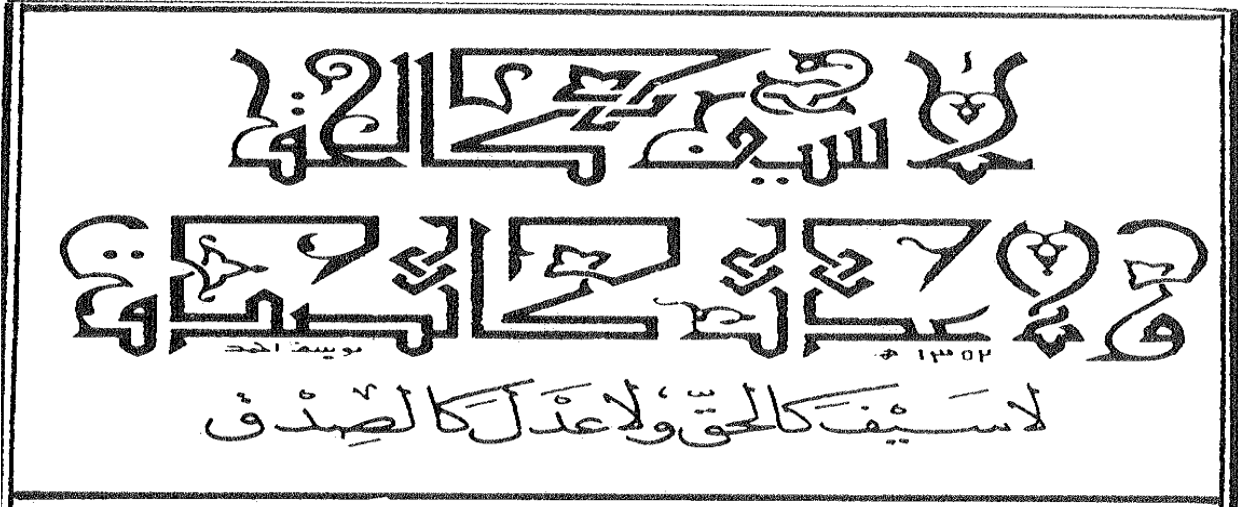 لا سيف كالحق
ولا عدل كالصدق
يوسف احمد
١٣٥٢ ھ
لا سَيْفَ كالحقّ، ولا عَدْلَ كالصِدْق